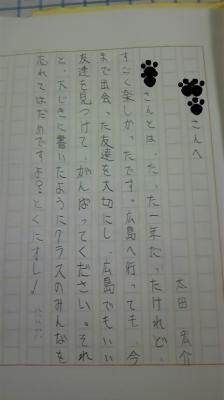 さんへ
太田 宏介
さんとは、たった一年だったけれど、
すごく楽しかったです。広島へ行っても、今
まで出会った友達を大切にし、広島でもいい
友達を見つけて、がんばってください。それ
と、大じきに書いたようにクラスのみんなを
忘れてはだめですよ?とくにオレ!